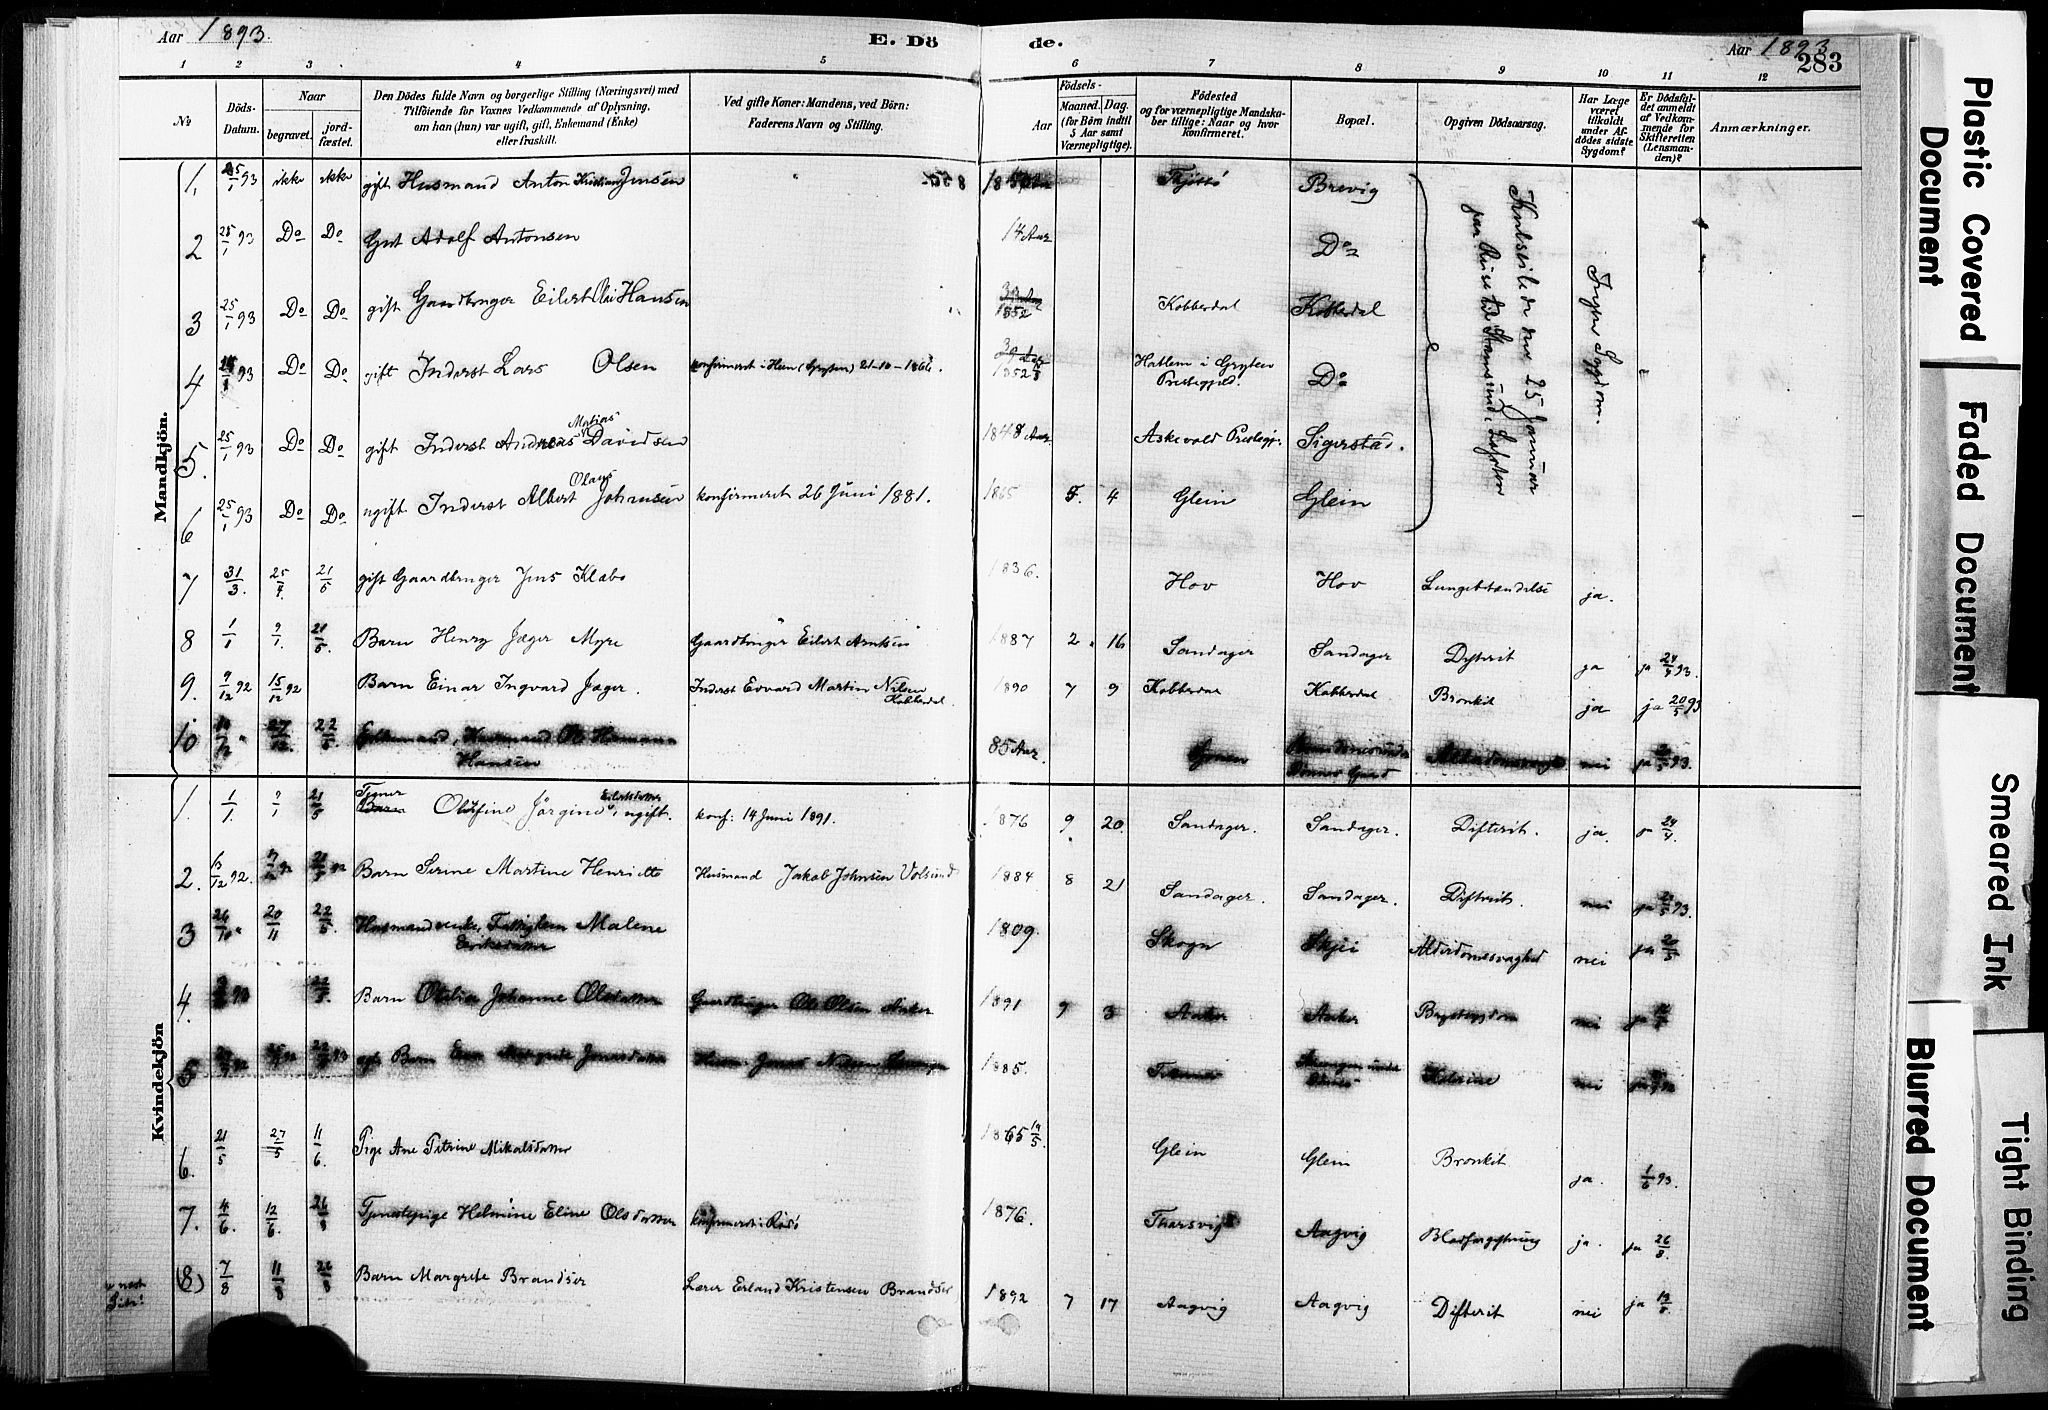 Aar 1893.
E. Dö
de.
Aar 1893
283
1 2 3 4 5 6 7 8 9 10 11 12
№
Döds-Datum.
Naar
begravet.
jord-fæstet.
Den Dödes fulde Navn og borgerlige Stilling (Næringsvei) med
Tilföiende for Voxnes Vedkommende af Oplysning,
om han (hun) var ugift, gift, Enkemand (Enke)
eller fraskilt.
Ved gifte Koner: Mandens, ved Börn:
Faderens Navn og Stilling.
Födsels-
Aar
Maaned. Dag.
(for Börn indtil
5 Aar samt
Værnepligtige).
Födested
og for værnepligtige Mandska-
ber tillige: Naar og hvor
konfirmeret.
Bopæl.
Opgiven Dödsaarsag.
Har Læge
været
tilkaldt
under Af-
dödes sidste
Sygdom?
Er Dödsfal-
det anmeldt
af Vedkom-
mende for
Skifteretten
(Lensman-
den)?
Anmærkninger.
Mandkjön.
1. 25/1 93 ikke ikke gift Husmand Anton Kristian Jensen Thjöttö Brevig
2 25/1 93 Do Do Gut Adolf Antonsen 14 Aar Do
3 25/1 93 Do Do gift Gaardbruger Eilert Olai Hansen 1852 Kobberdal Kobberdal
4 93 Do Do gift Inderst Lars Olsen konfirmeret i Hem (Gryten) 21-10-1866. 1852 Hatlem i Gryten Prestegjeld. Do
5. 25/1 93 Do Do gift Inderst Andreas Matias Davidsen 1848 Aar Askevold Prestegj. Sigerstad.
6 25/1 93 Do Do ugift Inderst Albert Olaus Johansen konfirmeret 26 Juni 1881. 1865 5. 4 Glein Glein
Kulseilede den 25 Januar
paa Reise til Stamsund i Lofoten
Ingen Sygdom.
7 31/3. 25/4. 21/5 gift Gaardbruger Jens Klæbo 1836. Hov Hov Lungebetændelse ja.
8 1/1 9/1. 21/5. Barn Henry Jæger Myre Gaardbruger Eilert Arntsen 1887 2 16 Sandager Sandager Difterit ja ja 24/4 93.
9. 9/12 92 15/12 92 Barn Einar Ingvard Jæger. Inderst Edvard Martin Nilsen Kobberdal 1890 7 9 Kobberdal Kobberdal Bronkit ja ja 20/5 93
10 27/12. 22/5 Husmand Ole Hansen 85 Aar. Alderdomssvaghed nei ja 93.
Kvindekjön
1. 1/1. 9/1 21/5 Pigen Barn Olufine Jörgine Eilertsdatter, ugift. konf: 14 Juni 1891. 1876 9 20. Sandager. Sandager. Difterit. ja. ja 24/4.
2. 13/12 92. 21/5 Barn Serine Martine Henriette Husmand Jakob Johnsen Volsund 1884 8 21 Sandager. Sandager. Difterit. nei ja 93.
3 26/10 20/11 22/5. Husmandsenke, Fattiglem Malene Eriksdatter 1809. Skogn Skjei Alderdomssvaghed nei ja 20/5
4. Barn Otelia Johanne Olsdatter Gaardbruger Ole Olsen Anker 1891 9 3 Anker Anker Brystsygdom nei ja
5 Barn Margrete Jonasdatter Jonas Nilsen 1885. nei ja
6. 21/5 27/5 11/6 Pige Ane Petrine Mikalsdatter 1865 Glein Glein Bronkit ja. 1/6 93.
7. 4/6. 12/6. 26/8 Tjenestepige Helmine Eline Olsdatter konfirmeret i Rödö 1876. Thorsvig Aagvig Blodforgiftning ja. ja 26/8.
(8) 7/8 11/8 26/8 Barn Margrete Brandser Lærer Erland Kristensen Brandser 1892 7 17 Aagvig Aagvig Difterit nei ja 13/8.
Plastic Covered
Document
Faded Document
Smeared Ink
Blurred Document
Tight Binding